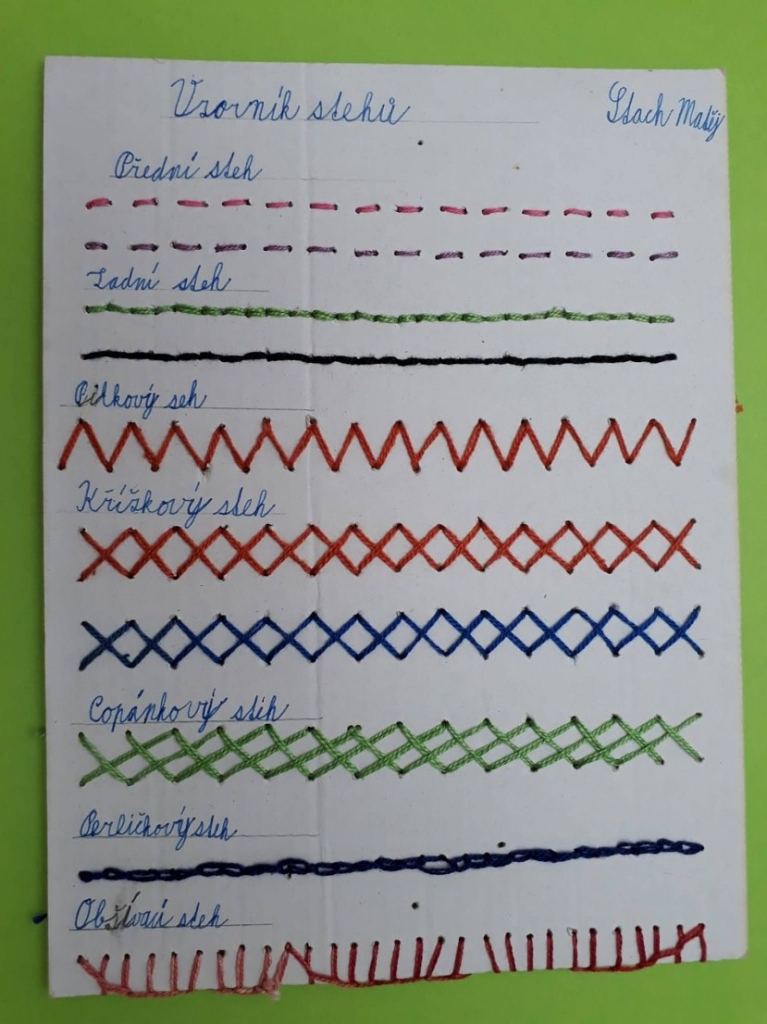 Vzorník stehů
Stach Matěj
Přední steh
Zadní steh
Pilkový seh
Křížkový steh
Copánkový stih
Perličkový steh
Obšívací steh